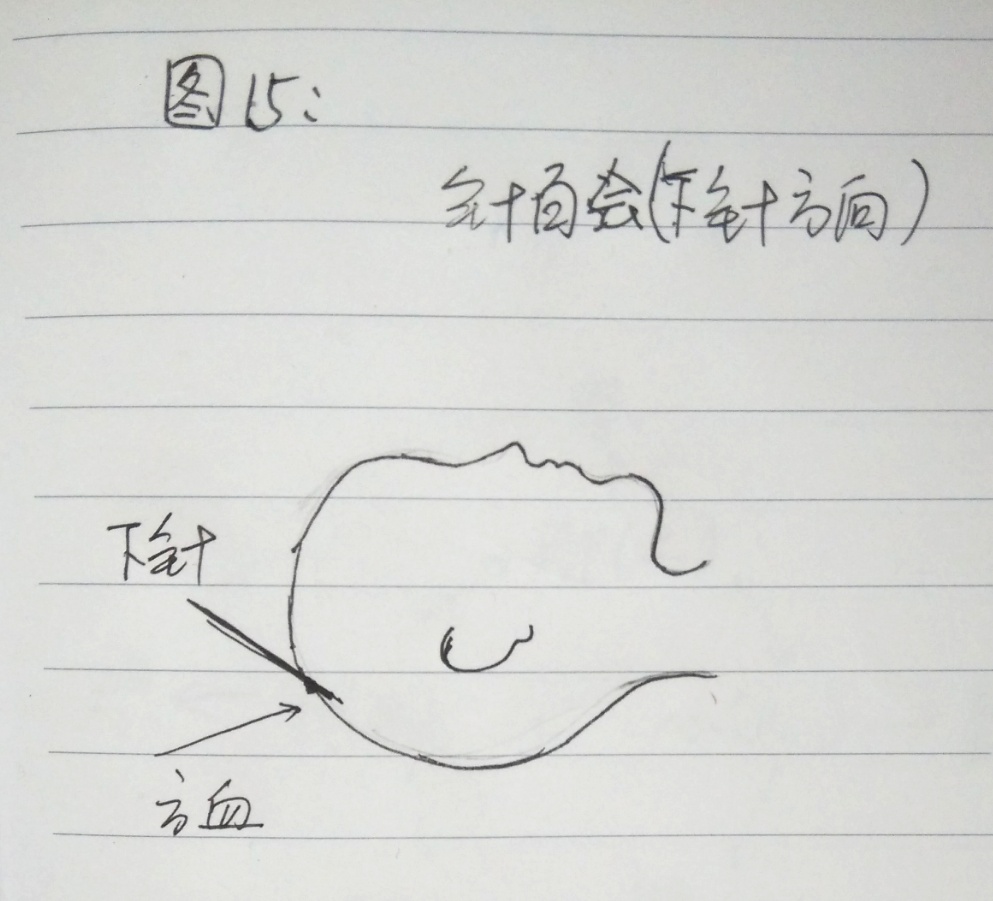 图15:
针百会(下针方向)
下针
方血